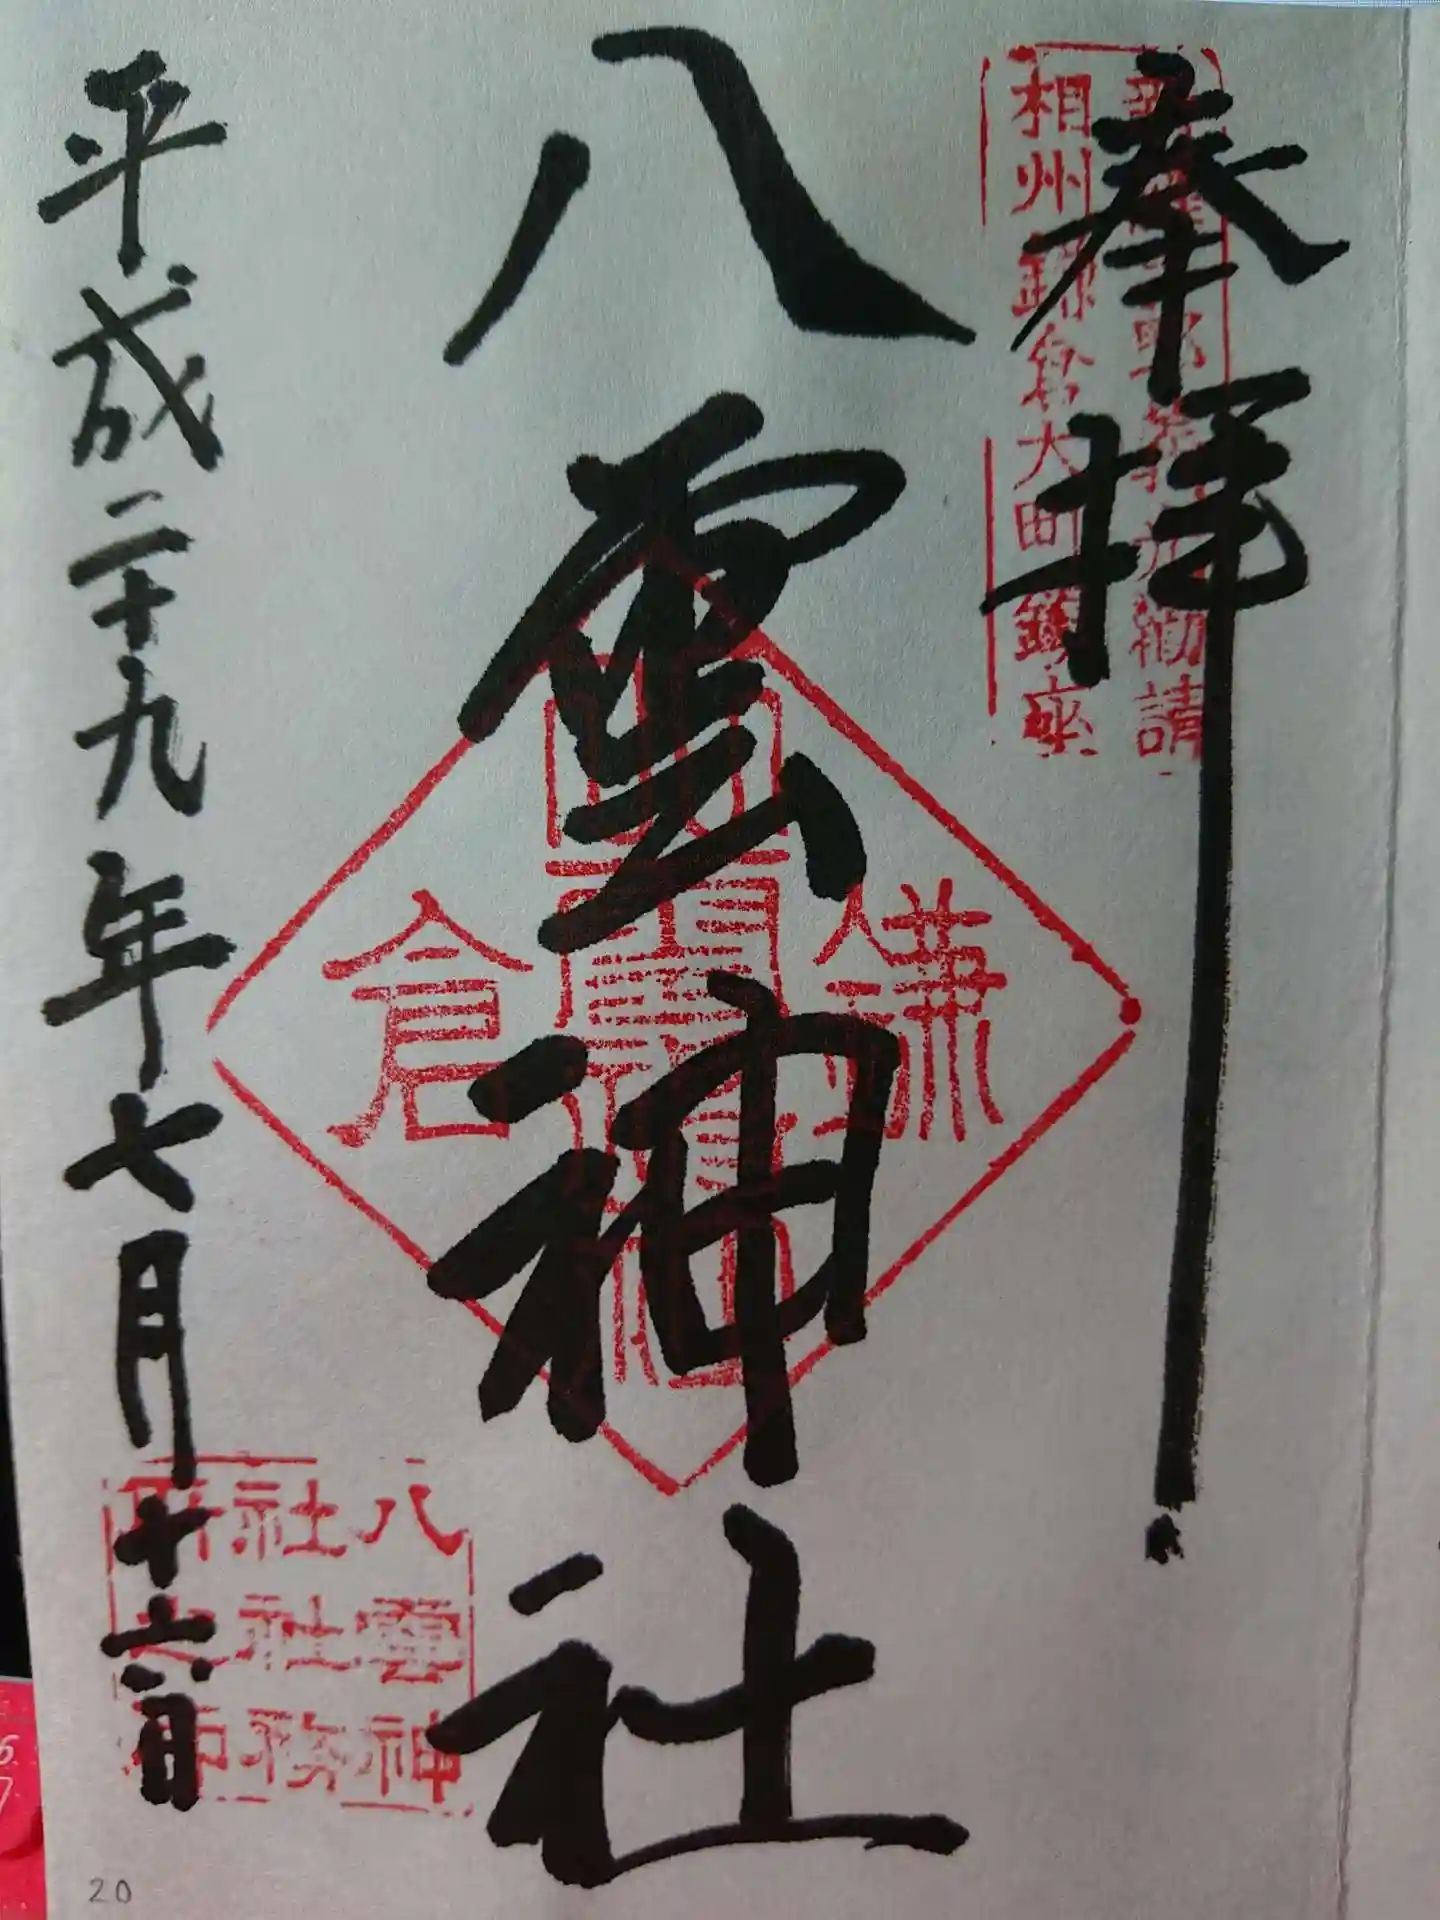 奉拝
相州鎌倉大町鎮座
八雲神社
鎌
倉
八雲神
社社務
所之印
平成二十九年七月十六日
20